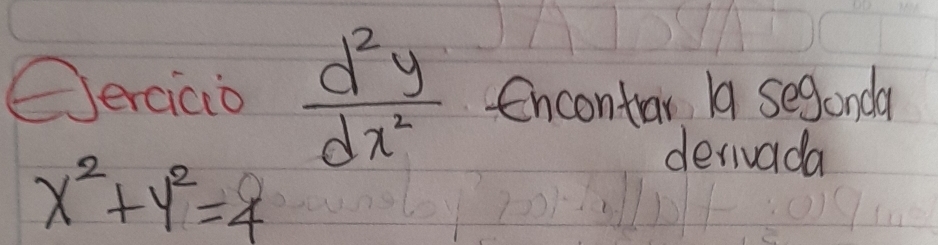 Ejercicio d²y/dx² Encontrar la segunda
derivada
x²+y²=4